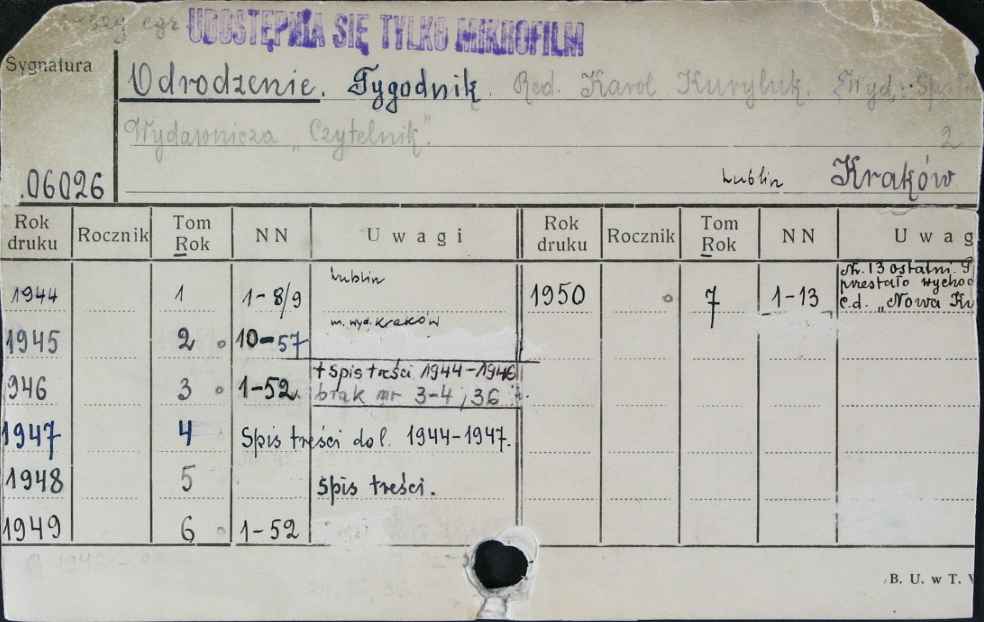 UDOSTĘPNIA SIĘ TYLKO MIKROFILM
Sygnatura
Odrodzenie. Tygodnik. Red. Karol Kuryluk. Wyd.
Wydawnicza „Czytelnik". 2
.06026
Lublin Kraków
Rok druku Rocznik Tom Rok NN Uwagi Rok druku Rocznik Tom Rok NN Uwag
1944 1 1-8/9 Lublin 1950 7 1-13 Nr. 13 ostatni.
przestało wychod
c.d. „Nowa Ku
1945 2 10-57 m. wyd. Kraków
946 3 1-52. + spis treści 1944-1946
brak nr 3-4; 36
1947 4 Spis treści dol. 1944-1947.
1948 5 Spis treści.
1949 6 1-52
B. U. w T.